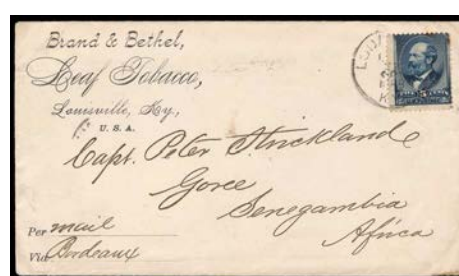 Brand & Bethel,
Leaf Tobacco,
Louisville, Ky.,
U. S. A.
Capt. Peter Strickland
Goree
Senegambia
Africa
Per mail
Via Bordeaux